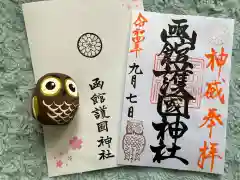 函館護國神社
神威奉拝
函館護國神社
令和
年
九月七日